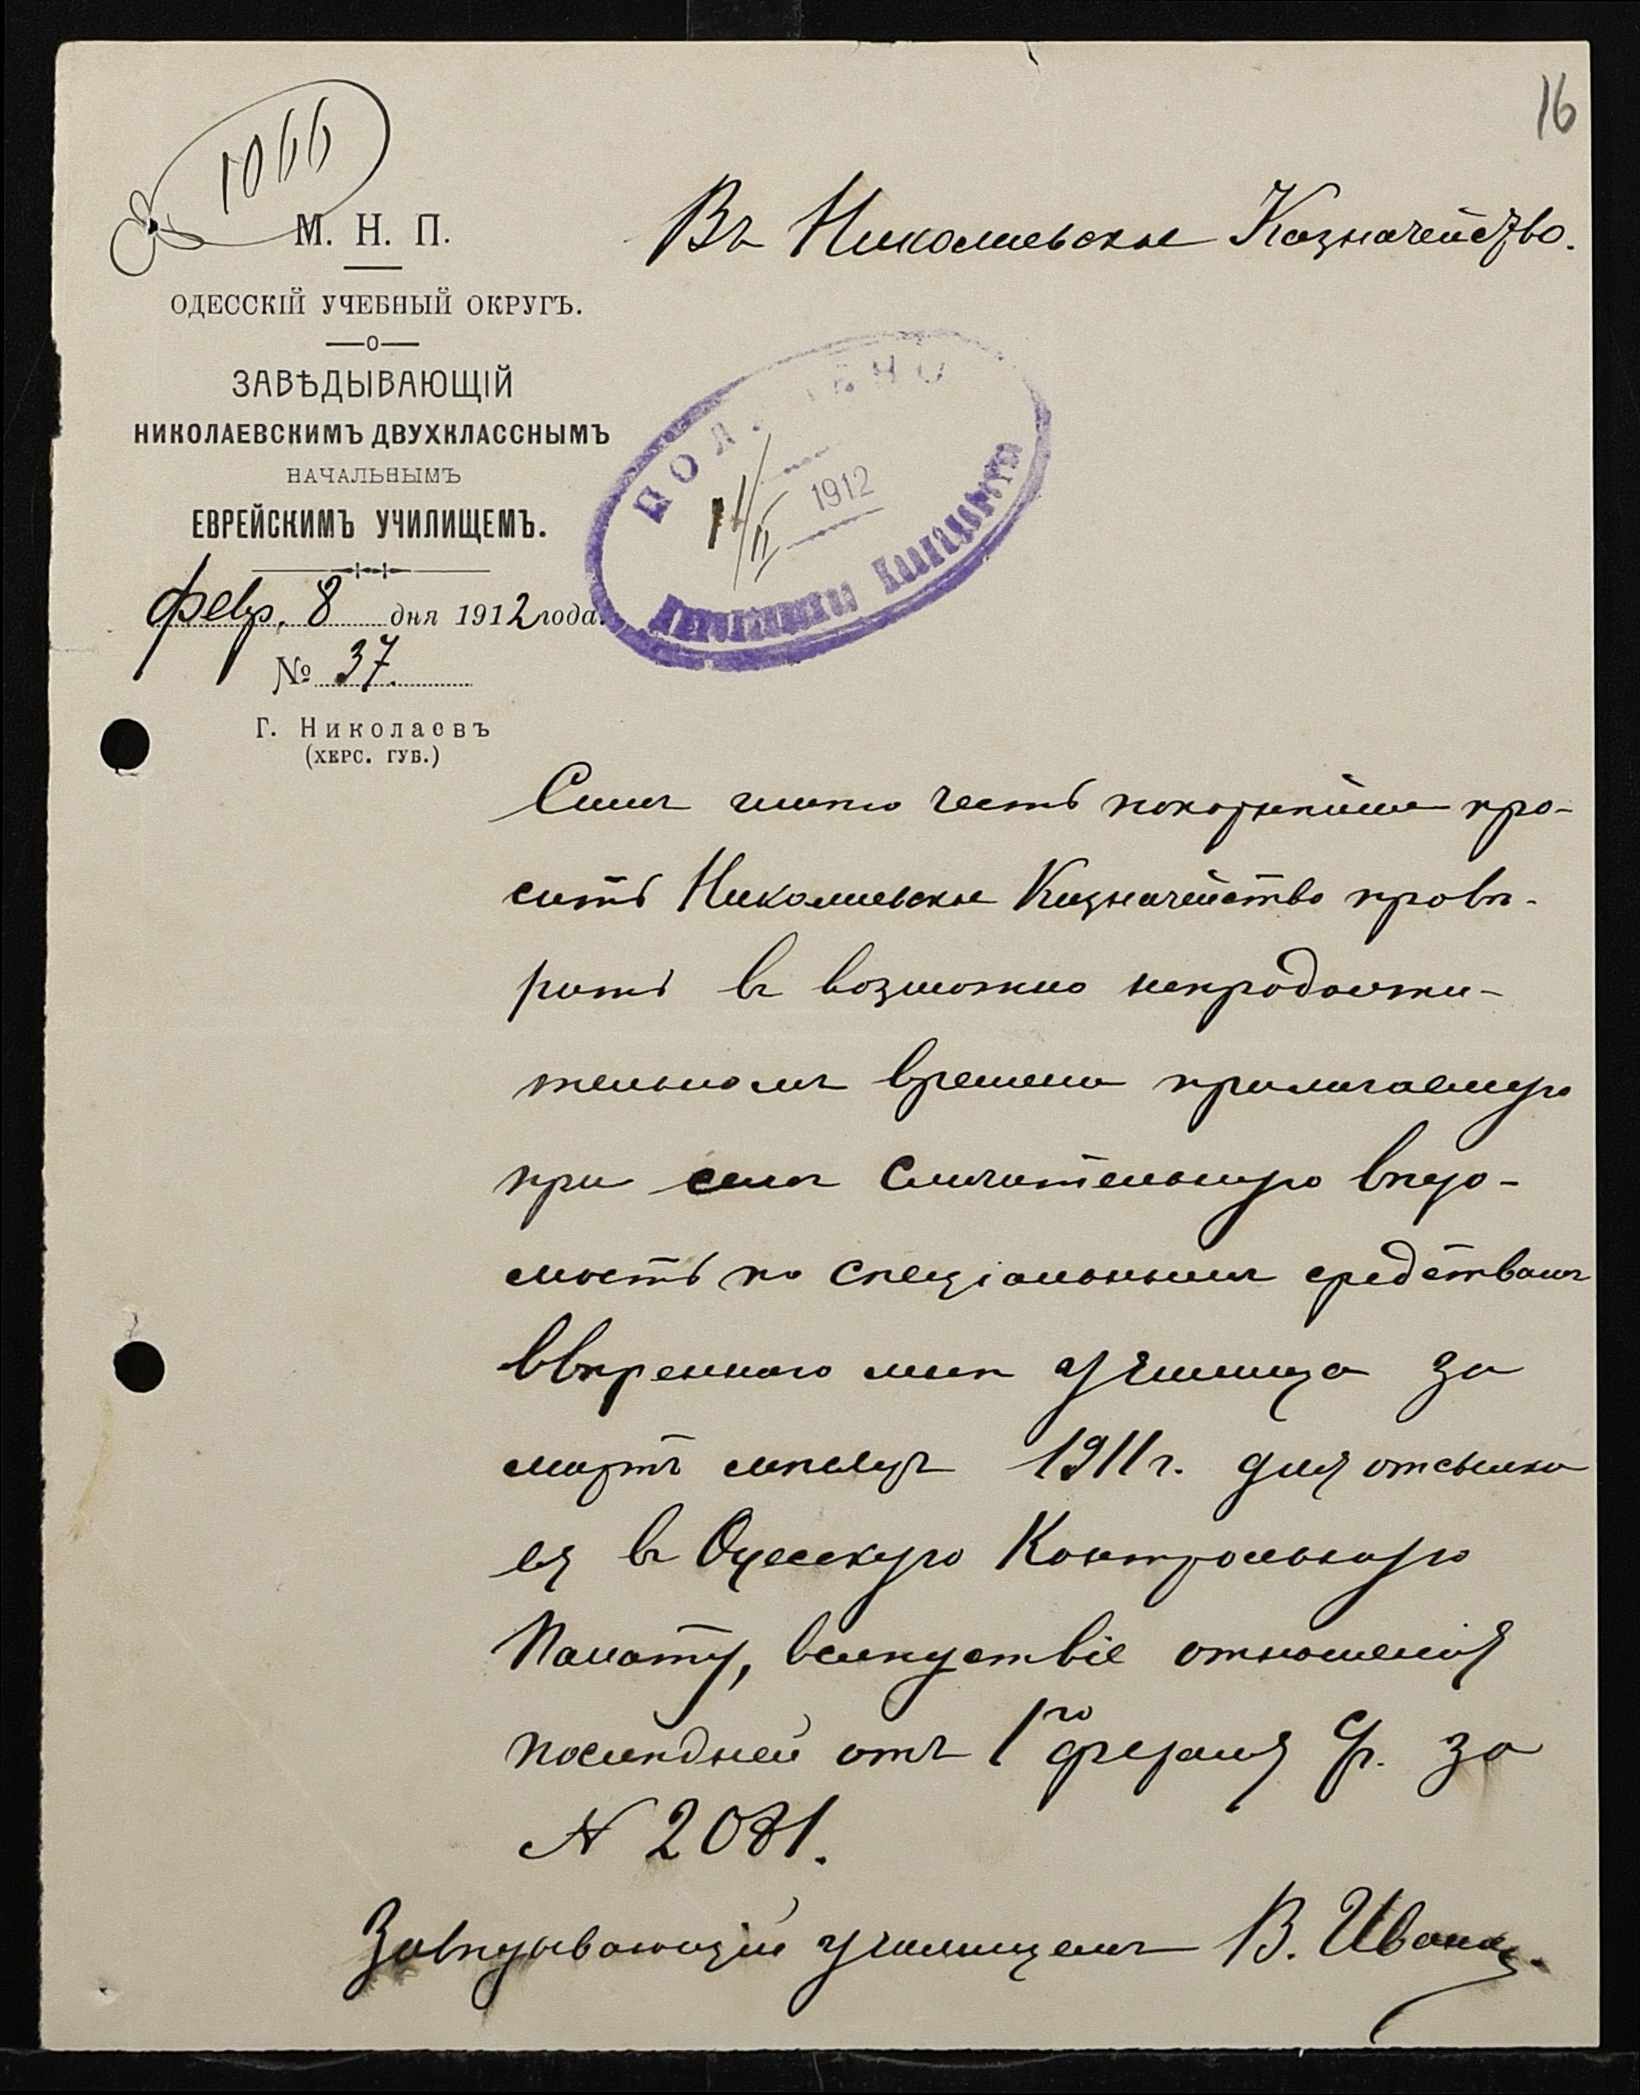 16
1066
М. Н. П.
Въ Николаевское Казначейство.
ОДЕССКІЙ УЧЕБНЫЙ ОКРУГЪ.
ЗАВѢДЫВАЮЩІЙ
НИКОЛАЕВСКИМЪ ДВУХКЛАССНЫМЪ
НАЧАЛЬНЫМЪ
ЕВРЕЙСКИМЪ УЧИЛИЩЕМЪ.
февр. 8 дня 1912 года.
№ 37.
Г. Николаевъ
(ХЕРС. ГУБ.)
ПОЛУЧЕНО
14/II 1912
Симъ имѣю честь покорнѣйше про-
сить Николаевское Казначейство провѣ-
рить въ возможно непродолжи-
тельномъ времени прилагаемую
при семъ Сличительную вѣдо-
мость по спеціальнымъ средствамъ
ввѣреннаго мнѣ училища за
мартъ мѣсяцъ 1911 г. для отсылки
ея въ Одесскую Контрольную
Палату, вслѣдствіе отношенія
послѣдней отъ 1го февраля с/г. за
№ 2081.
Завѣдывающій училищемъ В.